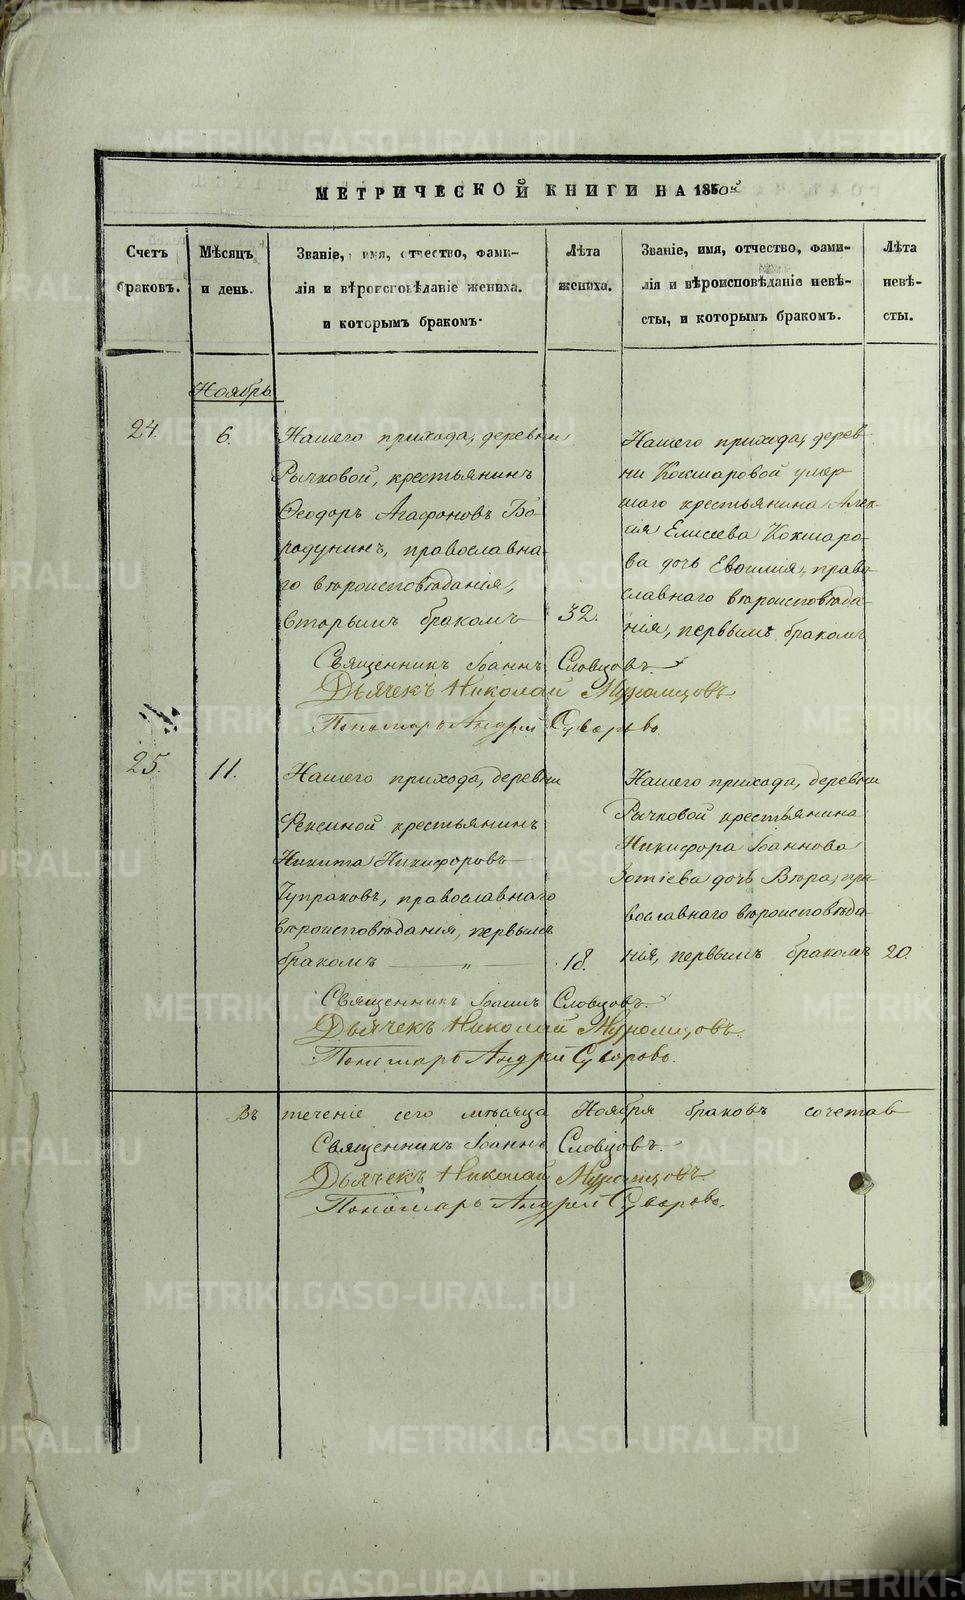 МЕТРИЧЕСКОЙ КНИГИ НА 1860й
Счетъ браковъ.
Мѣсяцъ и день.
Званіе, имя, отчество, фами-
лія и вѣроисповѣданіе жениха.
и которымъ бракомъ.
Лѣта жениха.
Званіе, имя, отчество, фами-
лія и вѣроисповѣданіе невѣ-
сты, и которымъ бракомъ.
Лѣта невѣ-
сты.
Ноябрь
24.
6.
Нашего прихода, деревни
Рычковой, крестьянинъ
Ѳеодоръ Агафоновъ Бо-
родунинъ, православна-
го вѣроисповѣданія,
вторымъ бракомъ
32.
Нашего прихода, дерев-
ни Кокшаровой умер-
шаго крестьянина Алек-
сія Елисеева Кокшаро-
ва дочь Евѳимія, право-
славнаго вѣроисповѣда-
нія, первымъ бракомъ
Священникъ Іоаннъ Словцовъ.
Дьячекъ Николай Муромцовъ
Пономарь Андрей Суворовъ.
25.
11.
Нашего прихода, деревни
крестьянинъ
Никита Никифоровъ
Чупраковъ, православнаго
вѣроисповѣданія, первымъ
бракомъ — „ —
18.
Нашего прихода, деревни
Рычковой крестьянина
Никифора Іоаннова
Зотіева дочь Вѣра, пра-
вославнаго вѣроисповѣда-
нія, первымъ бракомъ
20.
Священникъ Іоаннъ Словцовъ.
Дьячекъ Николай Муромцовъ
Пономарь Андрей Суворовъ.
Въ теченіе сего мѣсяца Ноября браковъ сочетав
Священникъ Іоаннъ Словцовъ.
Дьячекъ Николай Муромцовъ
Пономарь Андрей Суворовъ.
METRIKI.GASO-URAL.RU